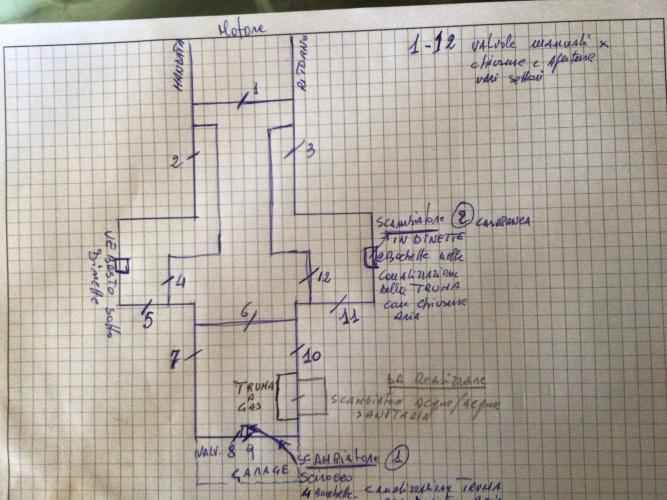 Motore
1-12 valvole manuali x
chiusure e aperture
vari settori
MANDATA
RITORNO
1
2
3
SCAMBIATORE 2 CASABIANCA
IN DINETTE
2 Bochette nelle
Canalizzazione
della TRUMA
con chiusure
Aria
VEBASTO sotto
Dinette
4
5
12
11
6
7
10
TRUMA
A
GAS
DA REALIZZARE
SCAMBIATORE ACQUA/ACQUA
SANITARIA
VALV. 8 9
GARAGE
SCAMBIATORE 1
SCIROCCO
4 Bochette canalizzazione TRUMA